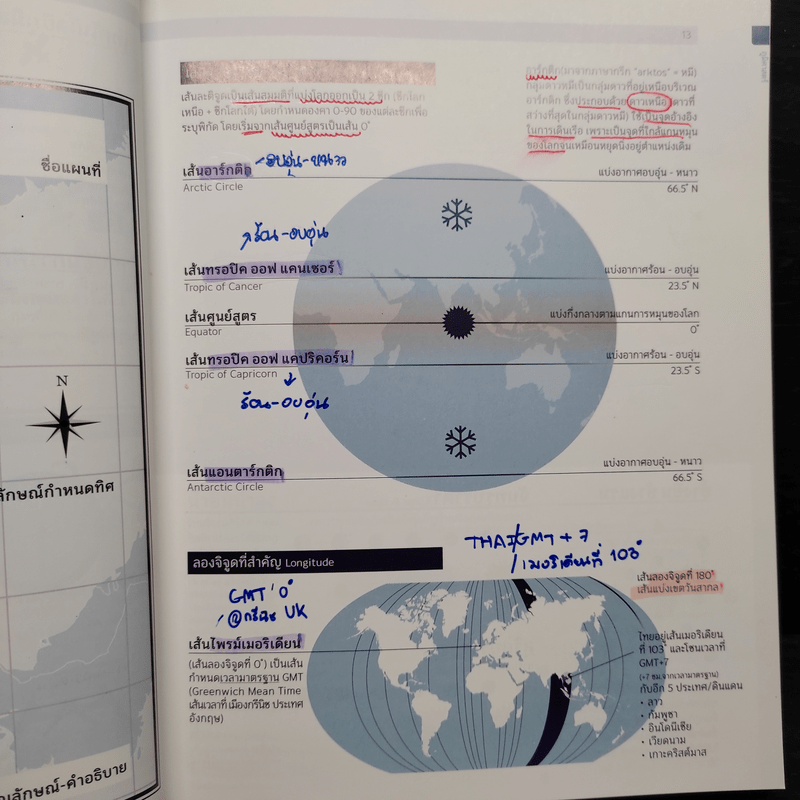 13
คู่มือ
เส้นละติจูดเป็นเส้นสมมติที่แบ่งโลกออกเป็น 2 ซีก (ซีกโลก
เหนือ + ซีกโลกใต้) โดยกำหนดองศา 0-90 ของแต่ละซีกเพื่อ
ระบุพิกัด โดยเริ่มจากเส้นศูนย์สูตรเป็นเส้น 0°
อาร์กติก(มาจากภาษากรีก "arktos" = หมี)
กลุ่มดาวหมีเป็นกลุ่มดาวที่อยู่เหนือบริเวณ
อาร์กติก ซึ่งประกอบด้วย ดาวเหนือ (ดาวที่
สว่างที่สุดในกลุ่มดาวหมี) ใช้เป็นจุดอ้างอิง
ในการเดินเรือ เพราะเป็นจุดที่ใกล้แกนหมุน
ของโลกจนเหมือนหยุดนิ่งอยู่ตำแหน่งเดิม
ชื่อแผนที่
เส้นอาร์กติก
อบอุ่น-หนาว
แบ่งอากาศอบอุ่น - หนาว
Arctic Circle
66.5° N
ร้อน-อบอุ่น
เส้นทรอปิค ออฟ แคนเซอร์
แบ่งอากาศร้อน - อบอุ่น
Tropic of Cancer
23.5° N
เส้นศูนย์สูตร
แบ่งกึ่งกลางตามแกนการหมุนของโลก
Equator
0°
เส้นทรอปิค ออฟ แคปริคอร์น
แบ่งอากาศร้อน - อบอุ่น
Tropic of Capricorn
23.5° S
ร้อน-อบอุ่น
N
ลักษณ์กำหนดทิศ
เส้นแอนตาร์กติก
แบ่งอากาศอบอุ่น - หนาว
Antarctic Circle
66.5° S
THAI/GMT + 7
เมอริเดียนที่ 103°
ลองจิจูดที่สำคัญ Longitude
GMT 0°
@กรีนิช UK
เส้นไพรม์เมอริเดียน
(เส้นลองจิจูดที่ 0°) เป็นเส้น
กำหนดเวลามาตรฐาน GMT
(Greenwich Mean Time
เส้นเวลาที่ เมืองกรีนิช ประเทศ
อังกฤษ)
เส้นลองจิจูดที่ 180°
เส้นแบ่งเขตวันสากล
ไทยอยู่เส้นเมอริเดียน
ที่ 103° และโซนเวลาที่
GMT+7
(+7 ชม.จากเวลามาตรฐาน)
กับอีก 5 ประเทศ/ดินแดน
• ลาว
• กัมพูชา
• อินโดนีเซีย
• เวียดนาม
• เกาะคริสต์มาส
ลักษณ์-คำอธิบาย